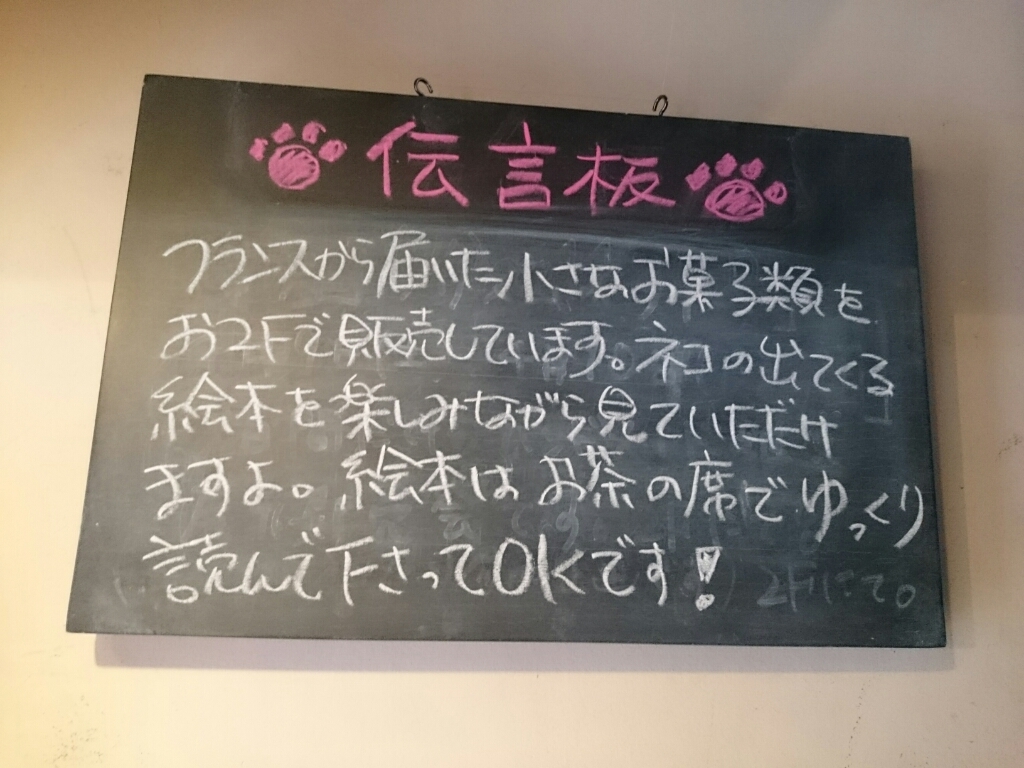 伝言板
フランスから届いた小さなお菓子類を
お2Fで販売しています。ネコの出てくる
絵本を楽しみながら見ていただけ
ますよ。絵本はお茶の席でゆっくり
読んで下さってOKです!
2Fにて。